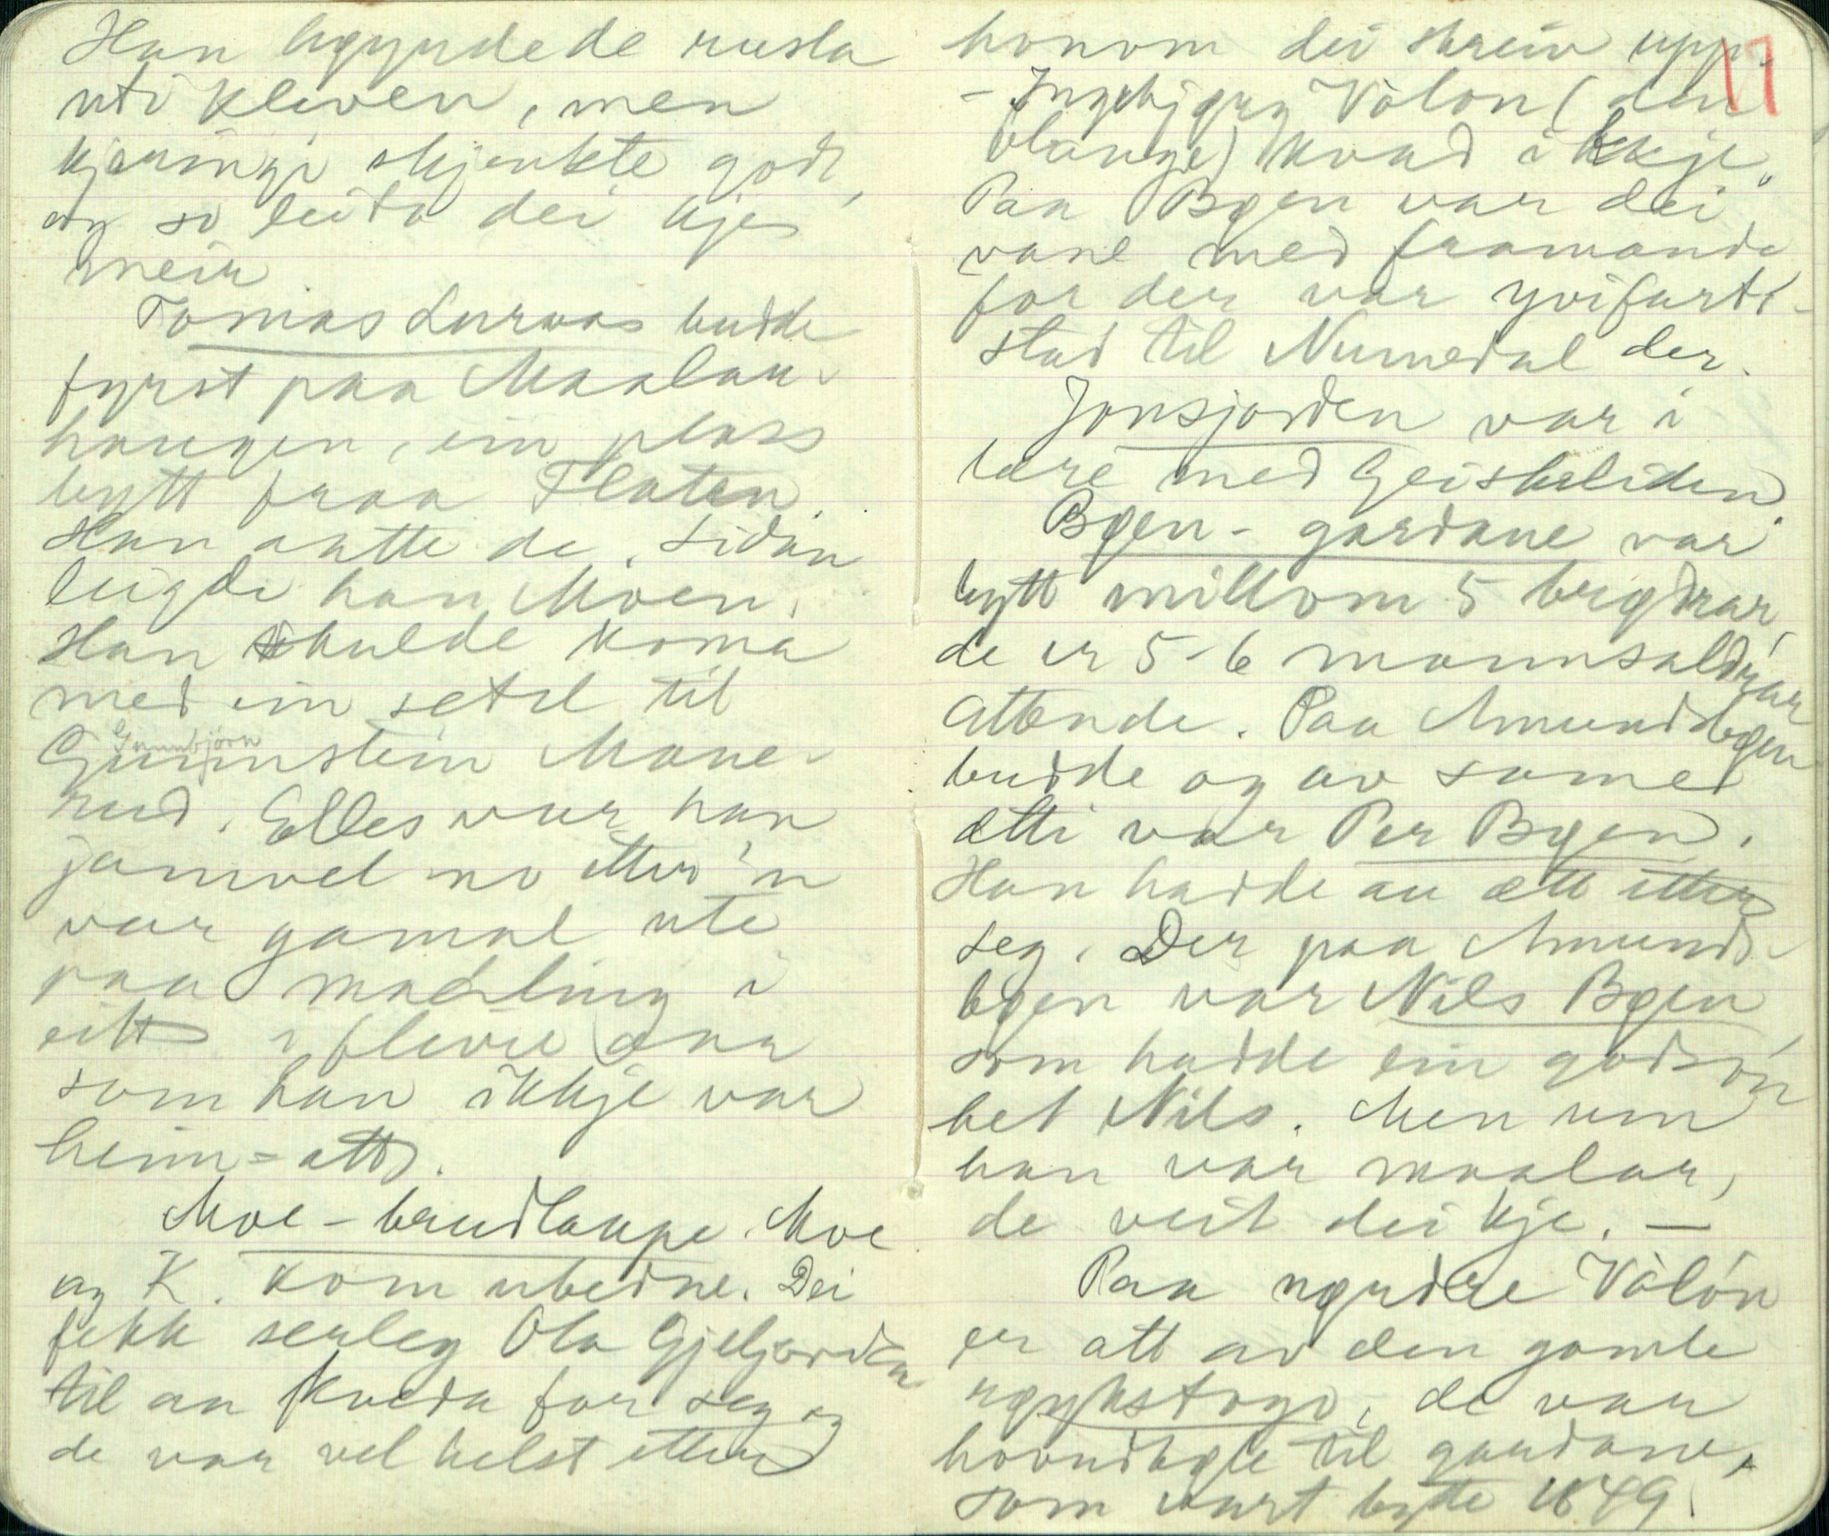 Han höyrdede rusla
uti kleven, men
kjeringi skjenkte godt,
og so leita dei kje
meir
Tomas Lurvas budde
fyrst paa Maalar-
haugen, ein plass
bytt fraa Flaten.
Han aatte de. Sidan
leigde han Moen.
Han skulde koma
med ein setel til
Gunnbjörn
Gunnstein Mane-
rud. Elles var han
jamvel no etter 'n
var gamal ute
paa maaling i
eitt i fleire
som han ikkje var
heim-att.
Moe-brudlaupe. Moe
og K. kom ubedne. Dei
fekk serleg Ola Gjeljorden
til aa kveda for seg og
de var vel helst etter
honom dei skreiv upp.
17
- Ingebjørg Vålon (den
blange) kvad ikkje.
Paa Bøen var dei
vane med framande
for der var yvifarts-
stad til Numedal der.
Jonsjorden var i
lære med Geiskeliden.
Bøen-gardane var
bytt millom 5 brødrar,
de er 5-6 mannsaldrar
attende. Paa Amundsbøen
budde og av same
ætti var Per Bøen.
Han hadde au ætt etter
seg. Der paa Amunds-
bøen var Nils Bøen
som hadde ein godson
het Nils. Men um
han var maalar,
de veit dei kje. —
Paa nørdre Vålón
er att av den gamle
røykstogo, de var
hovudbøle til gardane,
som vart bytte 1849.